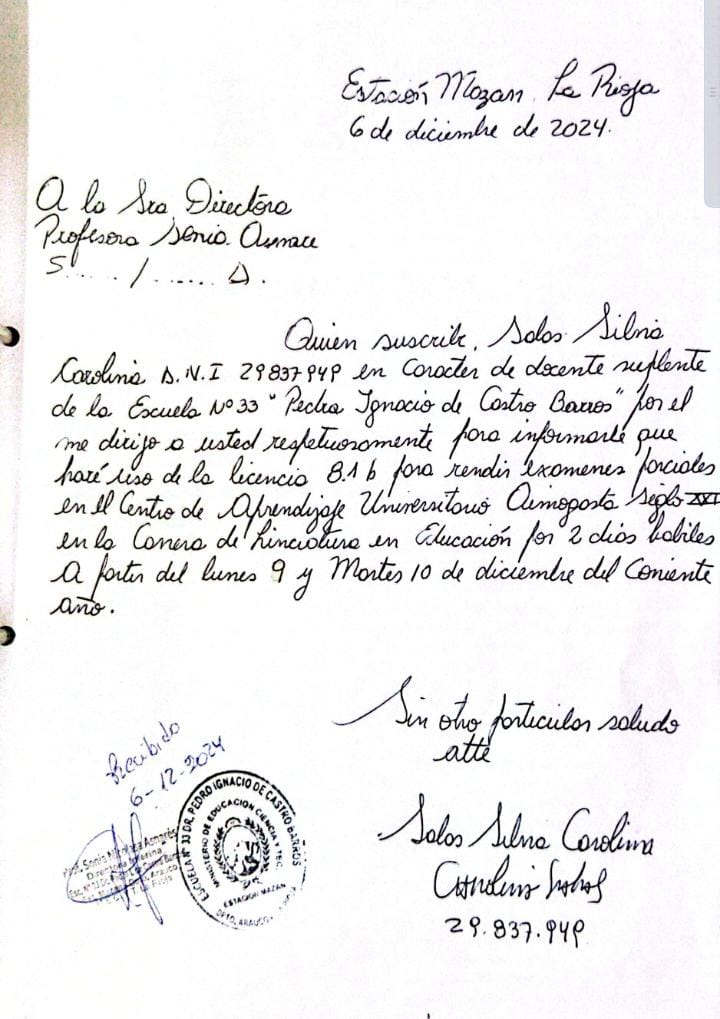 Estación Mozan, La Rioja
6 de diciembre de 2024.
A la Sra Directora
Profesora Sonia
S...../......D.
Quien suscribe, Salas Silvia
Carolina D.N.I 29837949 en Caracter de docente suplente
de la Escuela Nº 33 "Pedro Ignacio de Castro Barros" por el
me dirijo a usted respetuosamente para informarle que
haré uso de la licencia 8.1 b para rendir examenes parciales
en el Centro de Aprendizaje Universitario Aimogasta Siglo XXI
en la Carrera de Linciatura en Educación por 2 dias habiles
A partir del lunes 9 y Martes 10 de diciembre del Corriente
año.
Sin otro particular saludo
atte
Salas Silvia Carolina
29.837.949
Recibido
6-12-2024
Directora Interina
ESCUELA Nº 33 DR. PEDRO IGNACIO DE CASTRO BARROS
MINISTERIO DE EDUCACION CIENCIA Y TEC.
ESTACION MAZAN
DPTO. ARAUCO